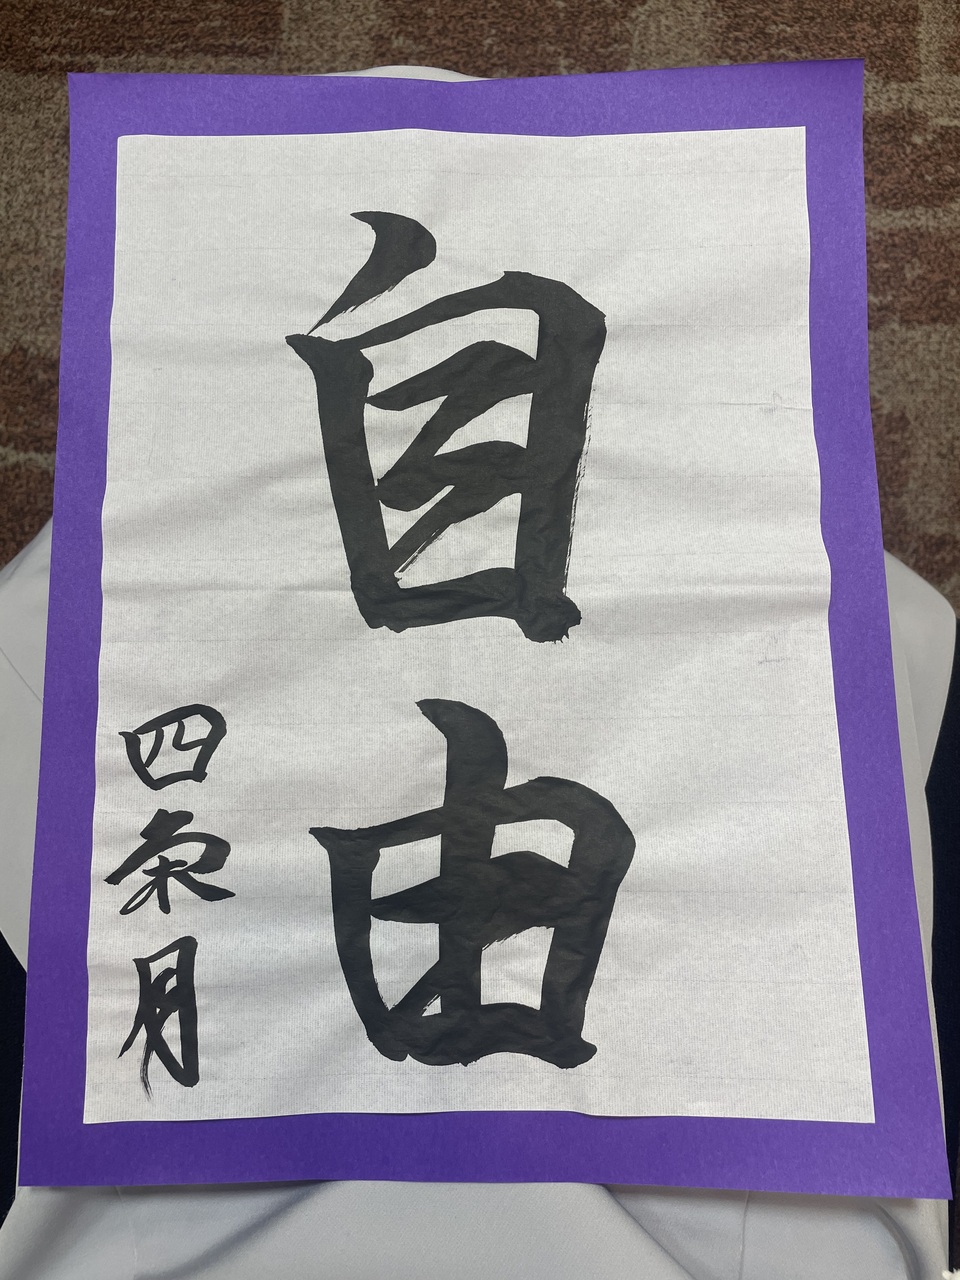 自由
四条月